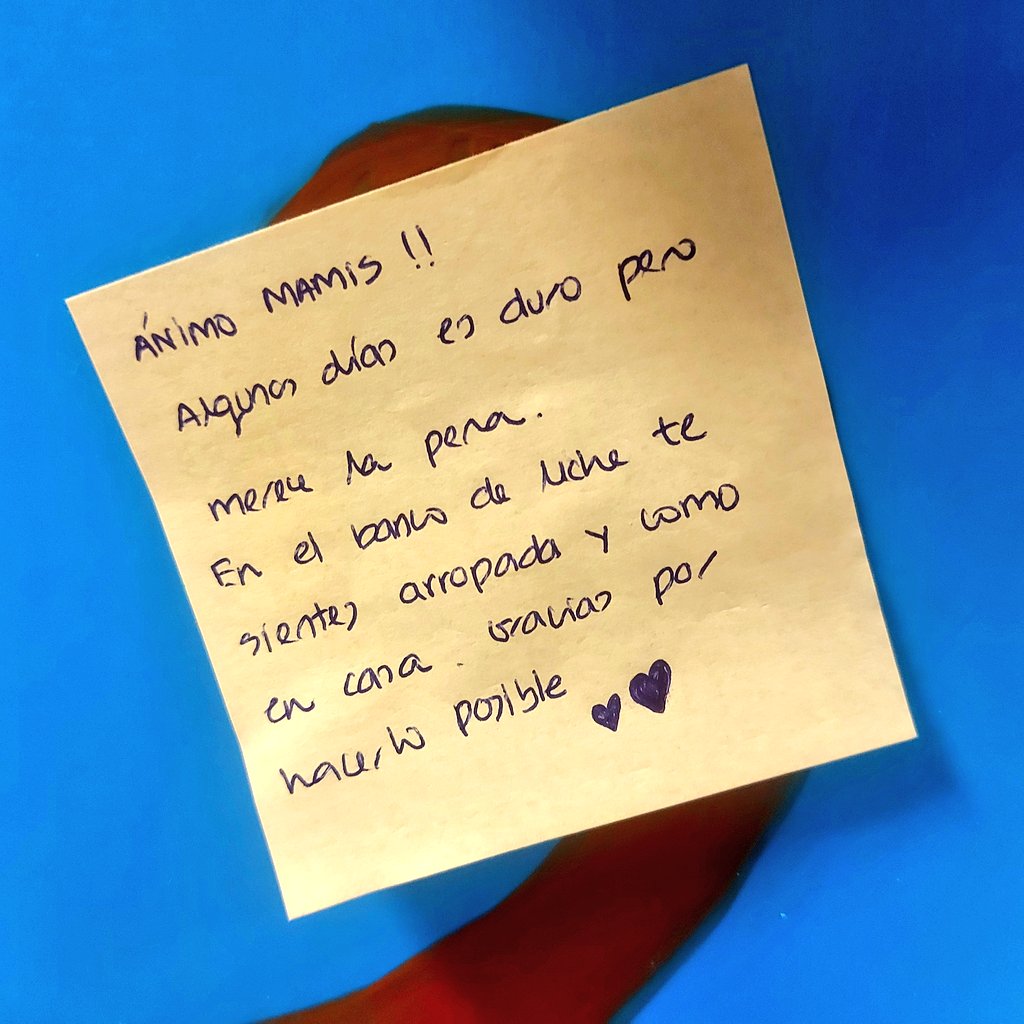 ÁNIMO MAMIS !!
Algunos días es duro pero
merece la pena.
En el banco de leche te
sientes arropada y como
en casa. Gracias por
hacerlo posible